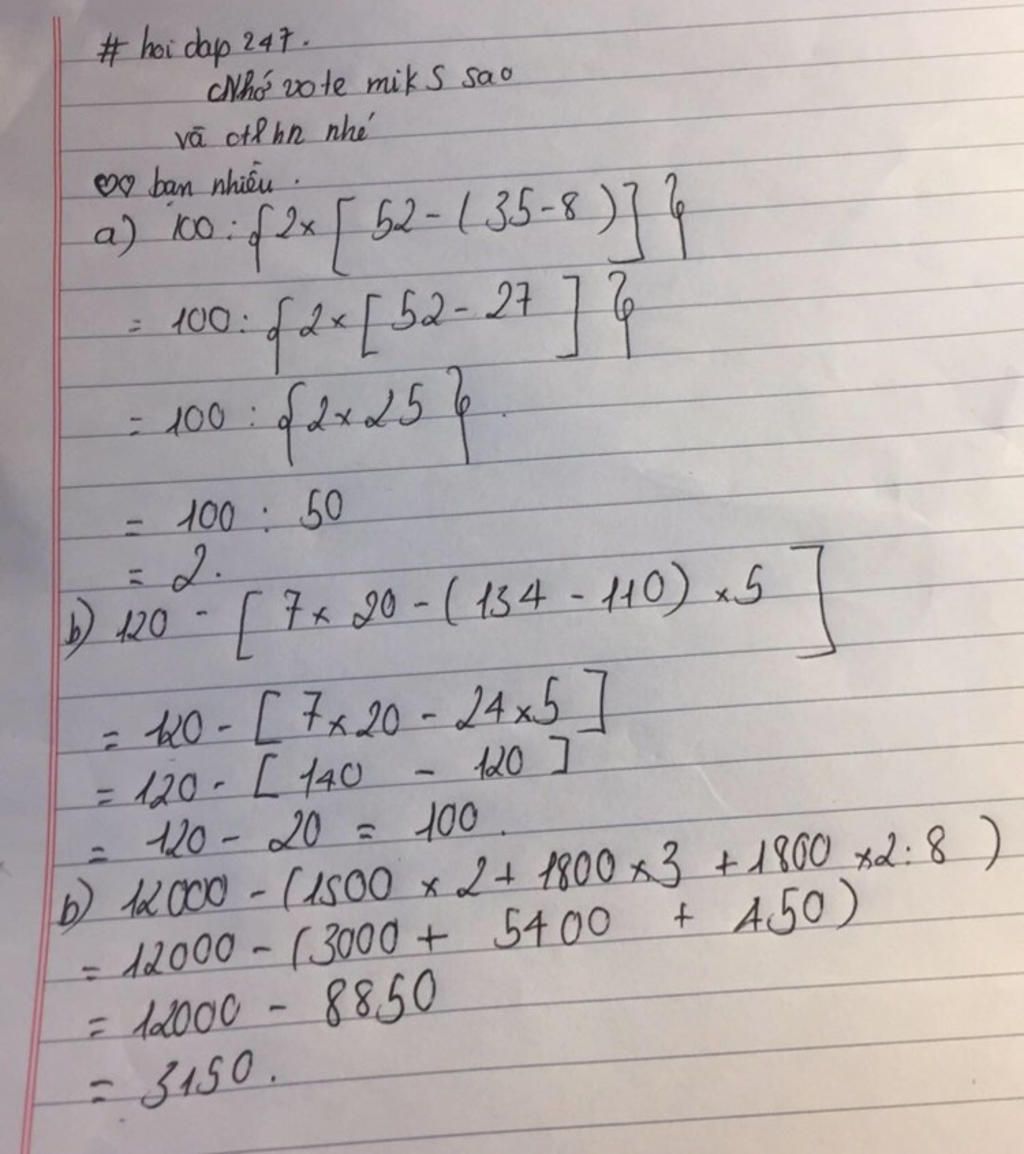 # hoi dap 247.
Nhớ vote mik 5 sao
và ctlhn nhé
♡♡ bạn nhiều.
a) 100 : { 2 x [ 52 - ( 35 - 8 ) ] }
= 100 : { 2 x [ 52 - 27 ] }
= 100 : { 2 x 25 }.
= 100 : 50
= 2.
b) 120 - [ 7 x 20 - ( 134 - 110 ) x 5 ]
= 120 - [ 7 x 20 - 24 x 5 ]
= 120 - [ 140 - 120 ]
= 120 - 20 = 100.
b) 12000 - ( 1500 x 2 + 1800 x 3 + 1800 x 2 : 8 )
= 12000 - ( 3000 + 5400 + 450 )
= 12000 - 8850
= 3150.